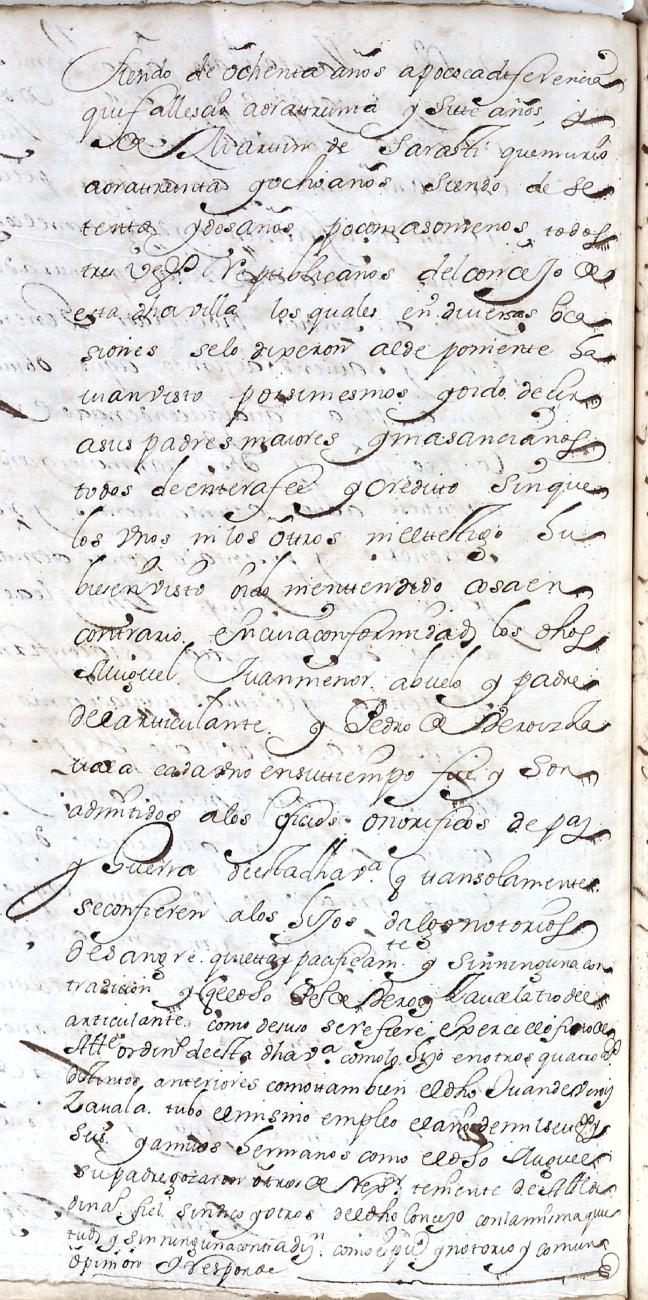 siendo de ochenta años a poca diferencia
que fallescio aora treinta y siete años, y
de Martin de Sarasti que murio
aora treinta y ocho años siendo de se
tenta y dos años poco mas o menos todos
tres vezos republicanos del concejo de
esta dha villa los quales en diversas oca
siones se lo dixeron al deponiente ha
vian visto por si mesmos y oido decir
a sus padres maiores y mas ancianos
todos de entera fee y credito sin que
los unos ni los otros ni el testigo hu
biesen visto oido ni entendido cosa en
contrario. En cuia conformidad los dhos
Miguel, Juan menor. abuelo y padre
del articulante. y Pedro de Veroiz Za
vala cada uno en su tiempo fue y son
admitidos a los oficios onorificos de paz
y Guerra de esta dha va. q tan solamente
se confieren a los hijos dalgo notorios
de sangre. quietta y pacificamte y sin ninguna con
tradicion y q el dho Po de Veroiz Zavala tio del
articulante, como de suso se refiere exercio el oficio de
Alle ordino de esta dha va. como lo hizo en otros quatro
anteriores como tambien el dho Juan de Veroiz
Zavala. tubo el mismo empleo el año de mil seis
y ambos hermanos como el dho Miguel
su padre gozaron otros de Rexor teniente de Alle
dinal. fiel. sindico y otros del dho concejo con la misma quie
tud y sin ninguna contradn. como es puco y notorio y comun
opinion y responde